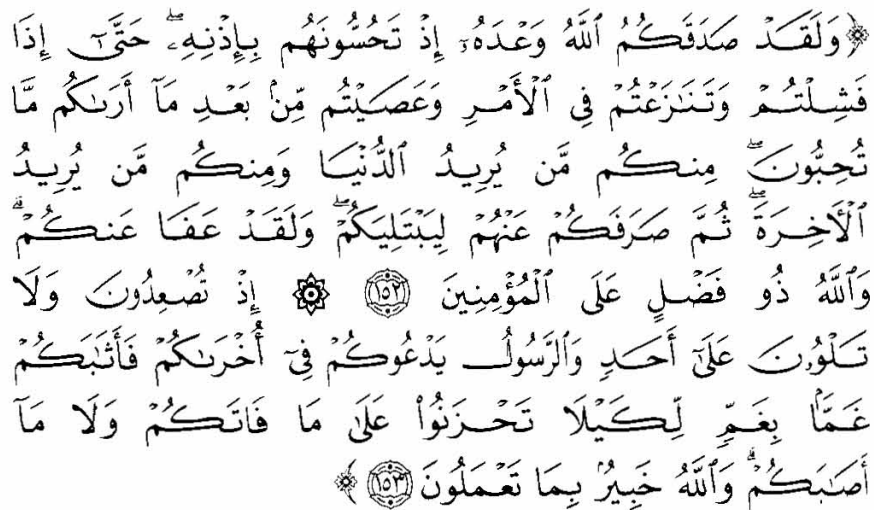 ﴿وَلَقَدْ صَدَقَكُمُ ٱللَّهُ وَعْدَهُۥٓ إِذْ تَحُسُّونَهُم بِإِذْنِهِۦۖ حَتَّىٰٓ إِذَا
فَشِلْتُمْ وَتَنَٰزَعْتُمْ فِى ٱلْأَمْرِ وَعَصَيْتُم مِّنۢ بَعْدِ مَآ أَرَىٰكُم مَّا
تُحِبُّونَۚ مِنكُم مَّن يُرِيدُ ٱلدُّنْيَا وَمِنكُم مَّن يُرِيدُ
ٱلْأَخِرَةَۚ ثُمَّ صَرَفَكُمْ عَنْهُمْ لِيَبْتَلِيَكُمْۖ وَلَقَدْ عَفَا عَنكُمْۗ
وَٱللَّهُ ذُو فَضْلٍ عَلَى ٱلْمُؤْمِنِينَ ١٥٢ ۞ إِذْ تُصْعِدُونَ وَلَا
تَلْوُۥنَ عَلَىٰٓ أَحَدٍ وَٱلرَّسُولُ يَدْعُوكُمْ فِىٓ أُخْرَىٰكُمْ فَأَثَٰبَكُمْ
غَمًّۢا بِغَمٍّ لِّكَيْلَا تَحْزَنُوا۟ عَلَىٰ مَا فَاتَكُمْ وَلَا مَآ
أَصَٰبَكُمْۗ وَٱللَّهُ خَبِيرٌۢ بِمَا تَعْمَلُونَ ١٥٣﴾